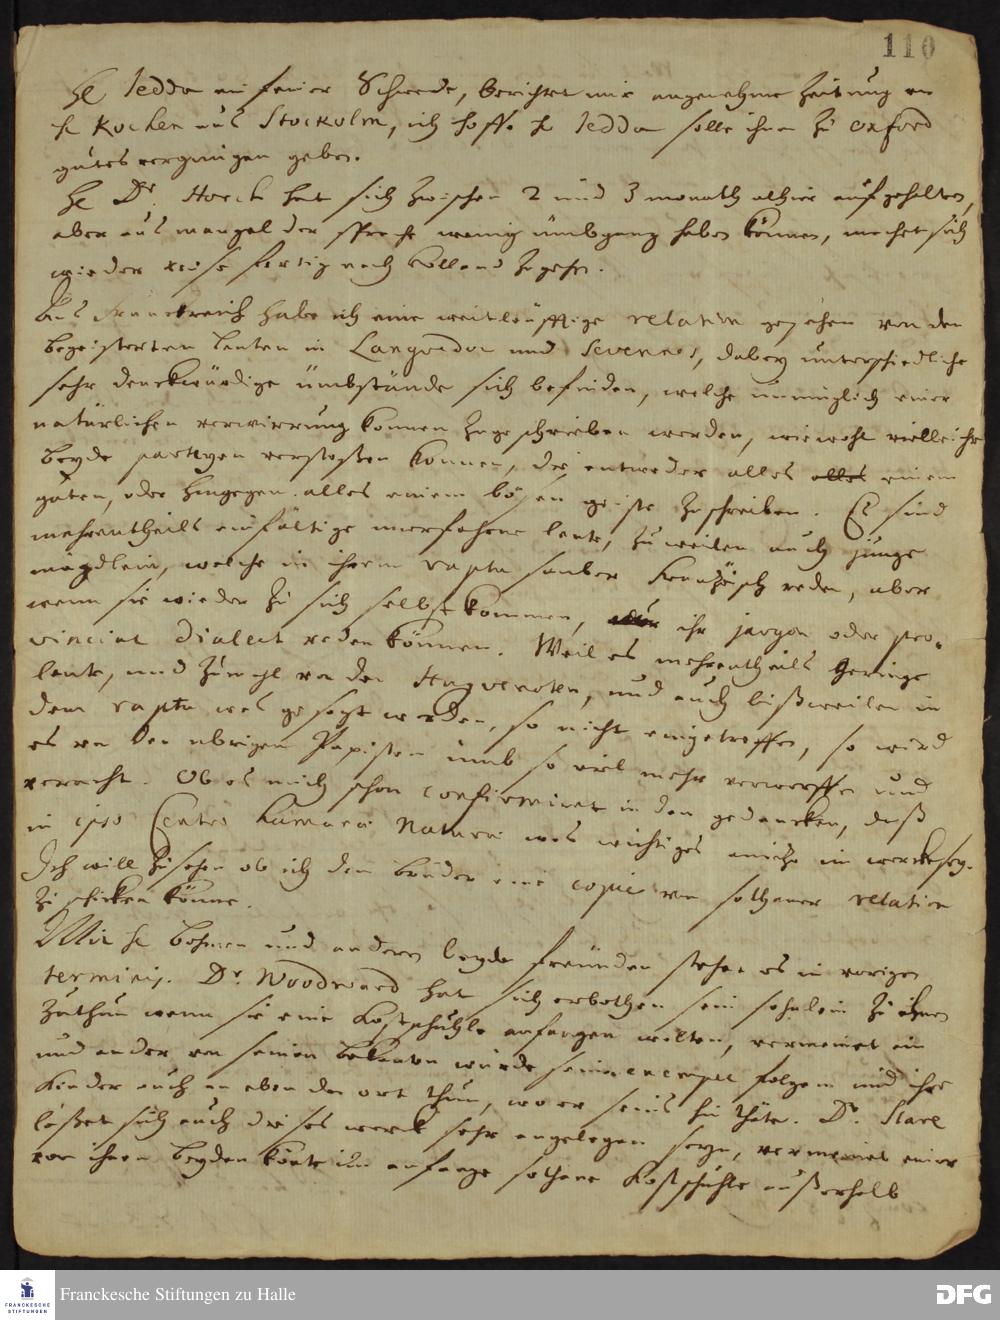 110
H. Jedda ein feiner Schwede, berichtet mir angenehme Zeitung von
H. Kochen aus Stockolm, ich hoffe H. Jedda solle ihnen zu Oxford
gutes vergnügen geben.
H. Dr. Horch hat sich zwischen 2 und 3 monath alhier aufgehalten,
aber aus mangel der sprache wenig umbgang haben können, machet sich
wieder reise fertig nach Holland zu gehen.
Aus Franckreich habe ich eine weitläufftige relation gesehen von den
begeisterten leuten in Langvedoc und Sevennes, dabey unterschiedliche
sehr denckwürdige umbstände sich befinden, welche unmüglich einer
natürlichen verwirrung können zugeschrieben werden, wiewohl vielleicht
beyde partheyen verstoßen können, die entweder alles alles einem
guten, oder hingegen alles einem bösen geiste zuschreiben. Es sind
mehrentheils einfältige unerfahrne leute, zuweilen auch junge
mägdlein, welche in ihrem raptu sauber Französch reden, aber
wenn sie wieder zu sich selbst kommen, nur ihr jargon oder pro-
vincial Dialect reden können. Weil es mehrentheils geringe
leute, und zumahl von den Hugvenoten, und auch bißweilen in
dem raptu was gesagt worden, so nicht eingetroffen, so wird
es von den übrigen Papisten umb so viel mehr verworffen und
veracht. Ob es mich schon confirmiret in den gedancken, daß
in ipso Centro humanae Naturae was wichtiges anitzo im wercke sey.
Ich will zusehen ob ich dem bruder eine copie von solthaner relation
zu schicken könne.
Mit H. Bohmen und andern beyde freunden stehet es in vorigen
terminis. Dr. Woodward hat sich erbothen sein sohnlein zu ihnen
zuthun wenn sie eine Kostschuhle anfangen wolten, vermeinet ein
und ander von seinen bekanten würde seinem exempel folgen und ihre
Kinder auch an eben den ort thun, wo er seins hin thäte. Dr. Slare
läßet sich auch dieses werck sehr angelegen seyn, vermeinet einer
von ihnen beyden könte im anfange solthane Kostschuhle außerhalb
Franckesche Stiftungen zu Halle
FRANCKESCHE
STIFTUNGEN
DFG